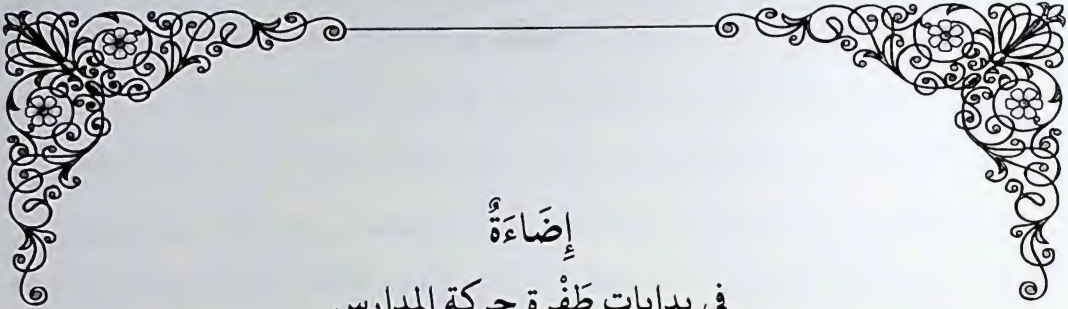 إِضَاءَةٌ
في بدايات طَفْرة حركة المدارس